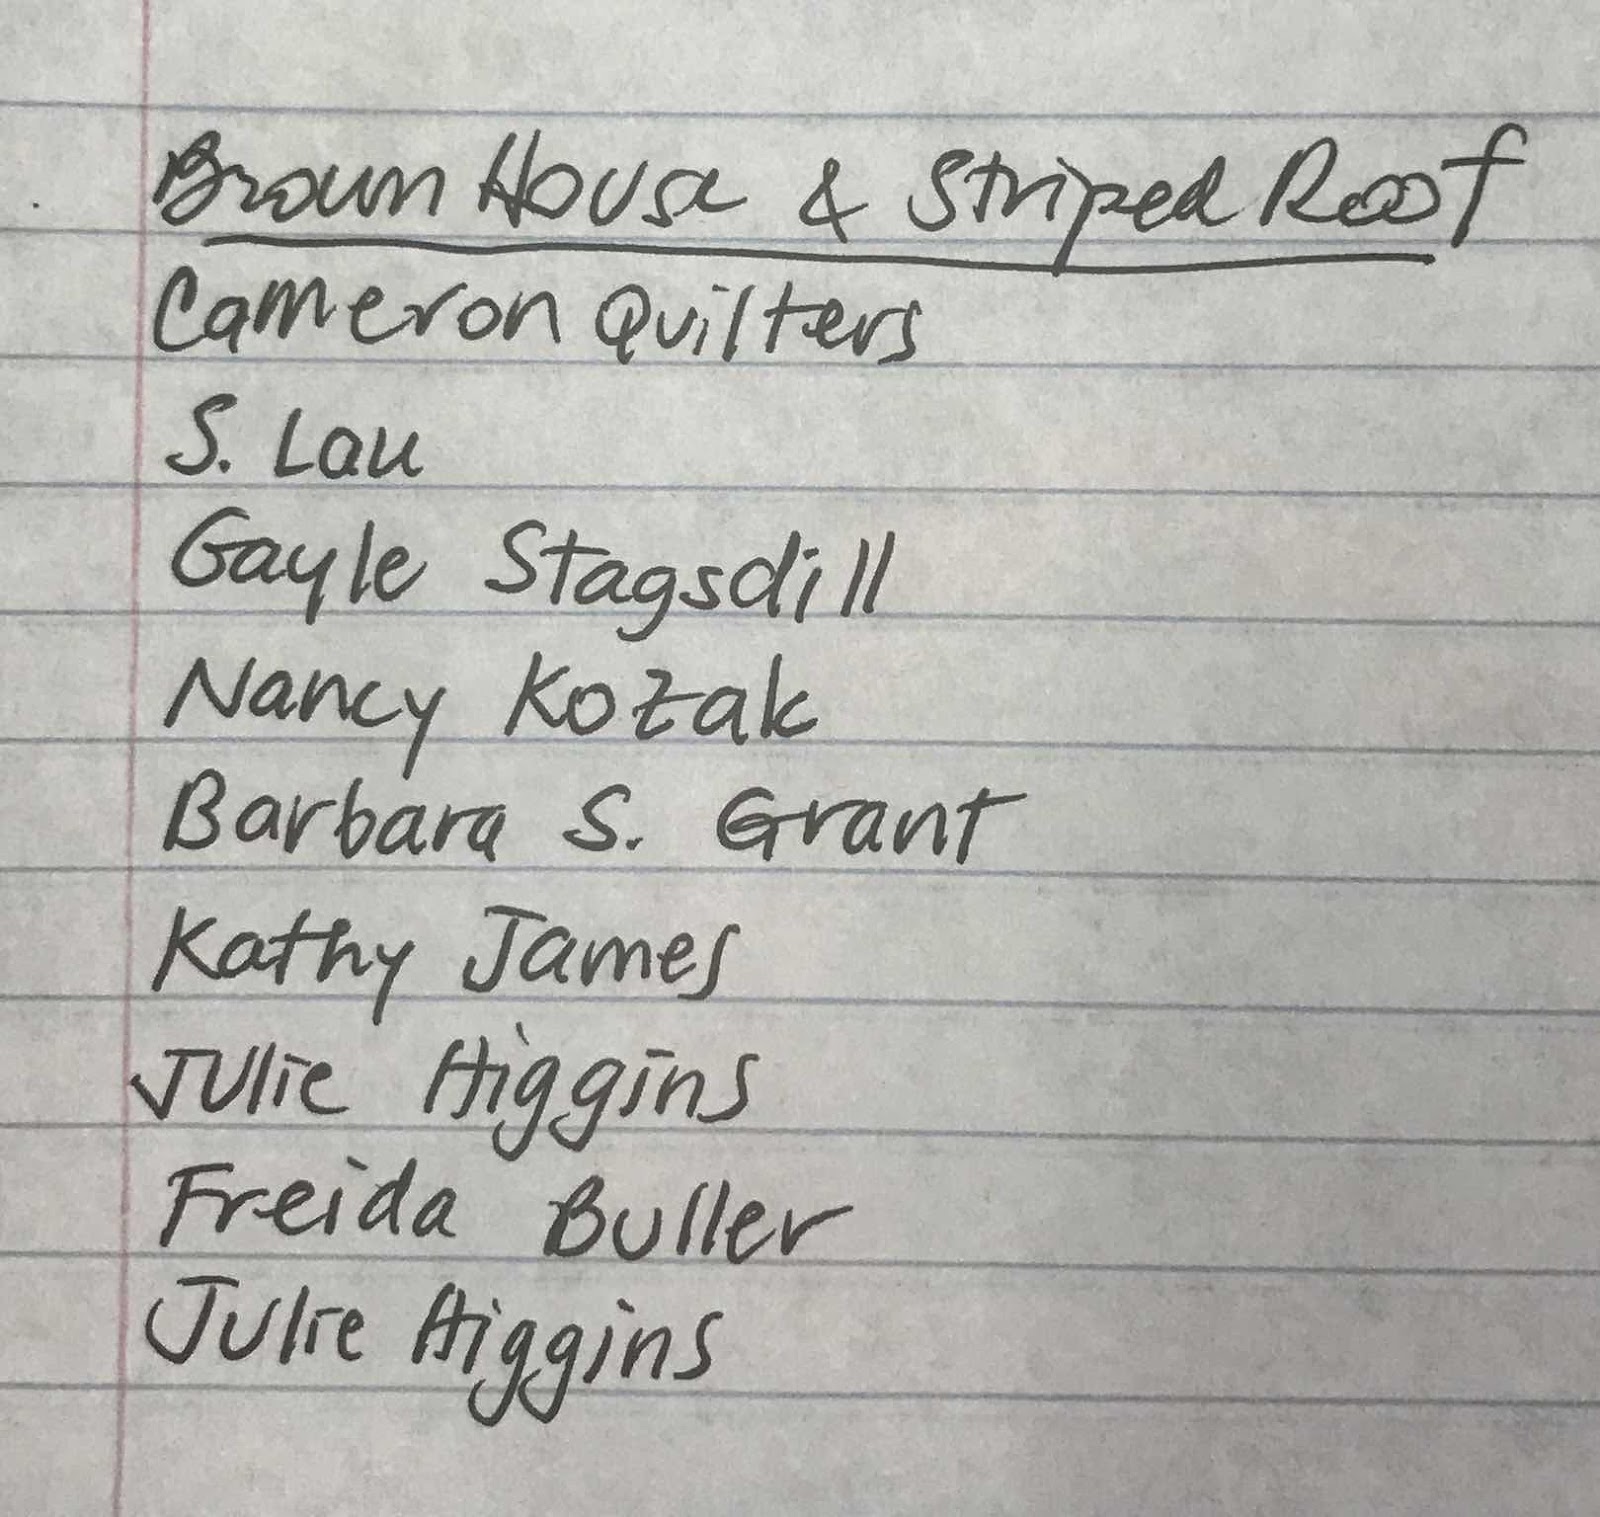 Brown House & Striped Roof
Cameron Quilters
S. Lau
Gayle Stagsdill
Nancy Kozak
Barbara S. Grant
Kathy James
Julie Higgins
Freida Buller
Julie Higgins